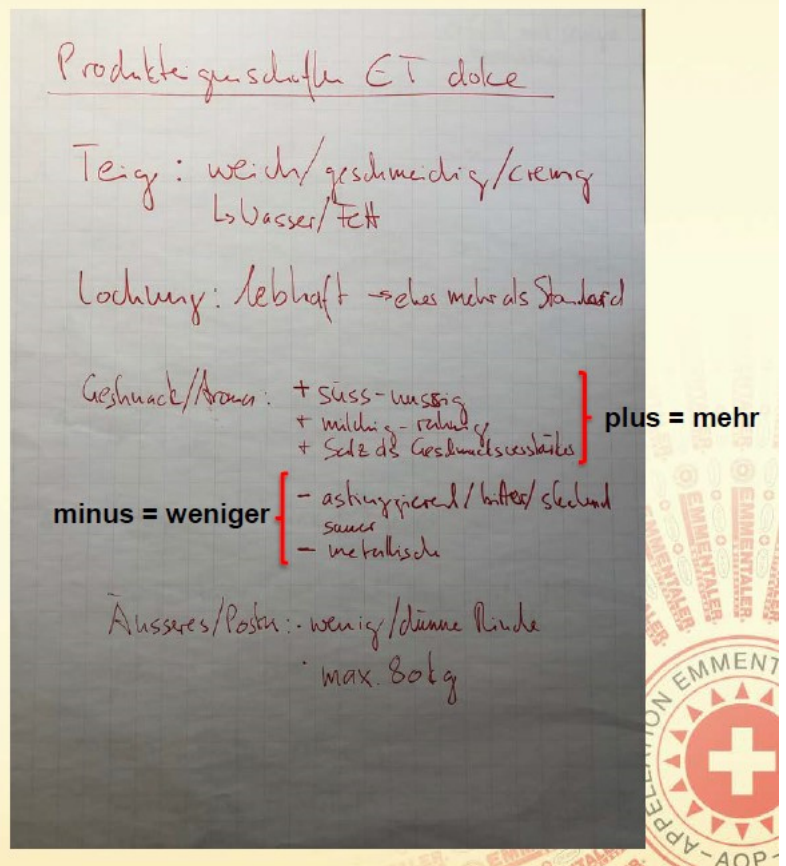 Produkteigenschaften ET dolce
Teig: weich/geschmeidig/cremig
↳ Wasser/Fett
Lochung: lebhaft → eher mehr als Standard
Geschmack/Aroma: + süss-nussig
+ milchig-rahmig
+ Salz als Geschmacksverstärker
plus = mehr
minus = weniger
- astringierend/bitter/stechend
sauer
- metallisch
Äusseres/Postur: · wenig/dünne Rinde
· max. 80kg
EMMENTALER
EMMENTALER
EMMENTALER
APPELLATION EMMENT
AOP